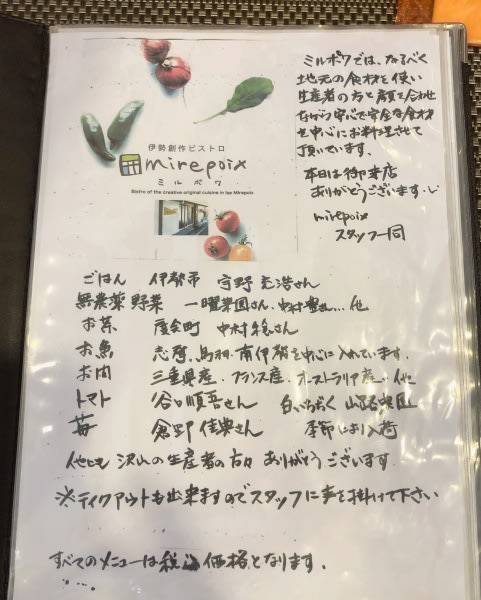 伊勢創作ビストロ
mirepoix
ミルポワ
Bistro of the creative original cuisine in Ise Mirepoix
ミルポワでは、なるべく
地元の食材を使い
生産者の方と顔を合わせ
ながら安心で安全な食材
を中心にお料理させて
頂いています。
本日は御来店
ありがとうございます
mirepoix
スタッフ一同
ごはん 伊勢市 浩さん
無農薬野菜 一曜菜園さん、中村さん… 他
お茶 度会町 中村さん
お魚 志摩、鳥羽、南伊勢を中心に入れています。
お肉 三重県産、フランス産、オーストラリア産、他
トマト 谷口順吾さん 白いちぢく 山路農園
苺 倉野佳典さん 季節により入荷
他にも 沢山の生産者の方々 ありがとうございます
※テイクアウトも出来ますのでスタッフに声を掛けて下さい
すべてのメニューは税込価格となります。